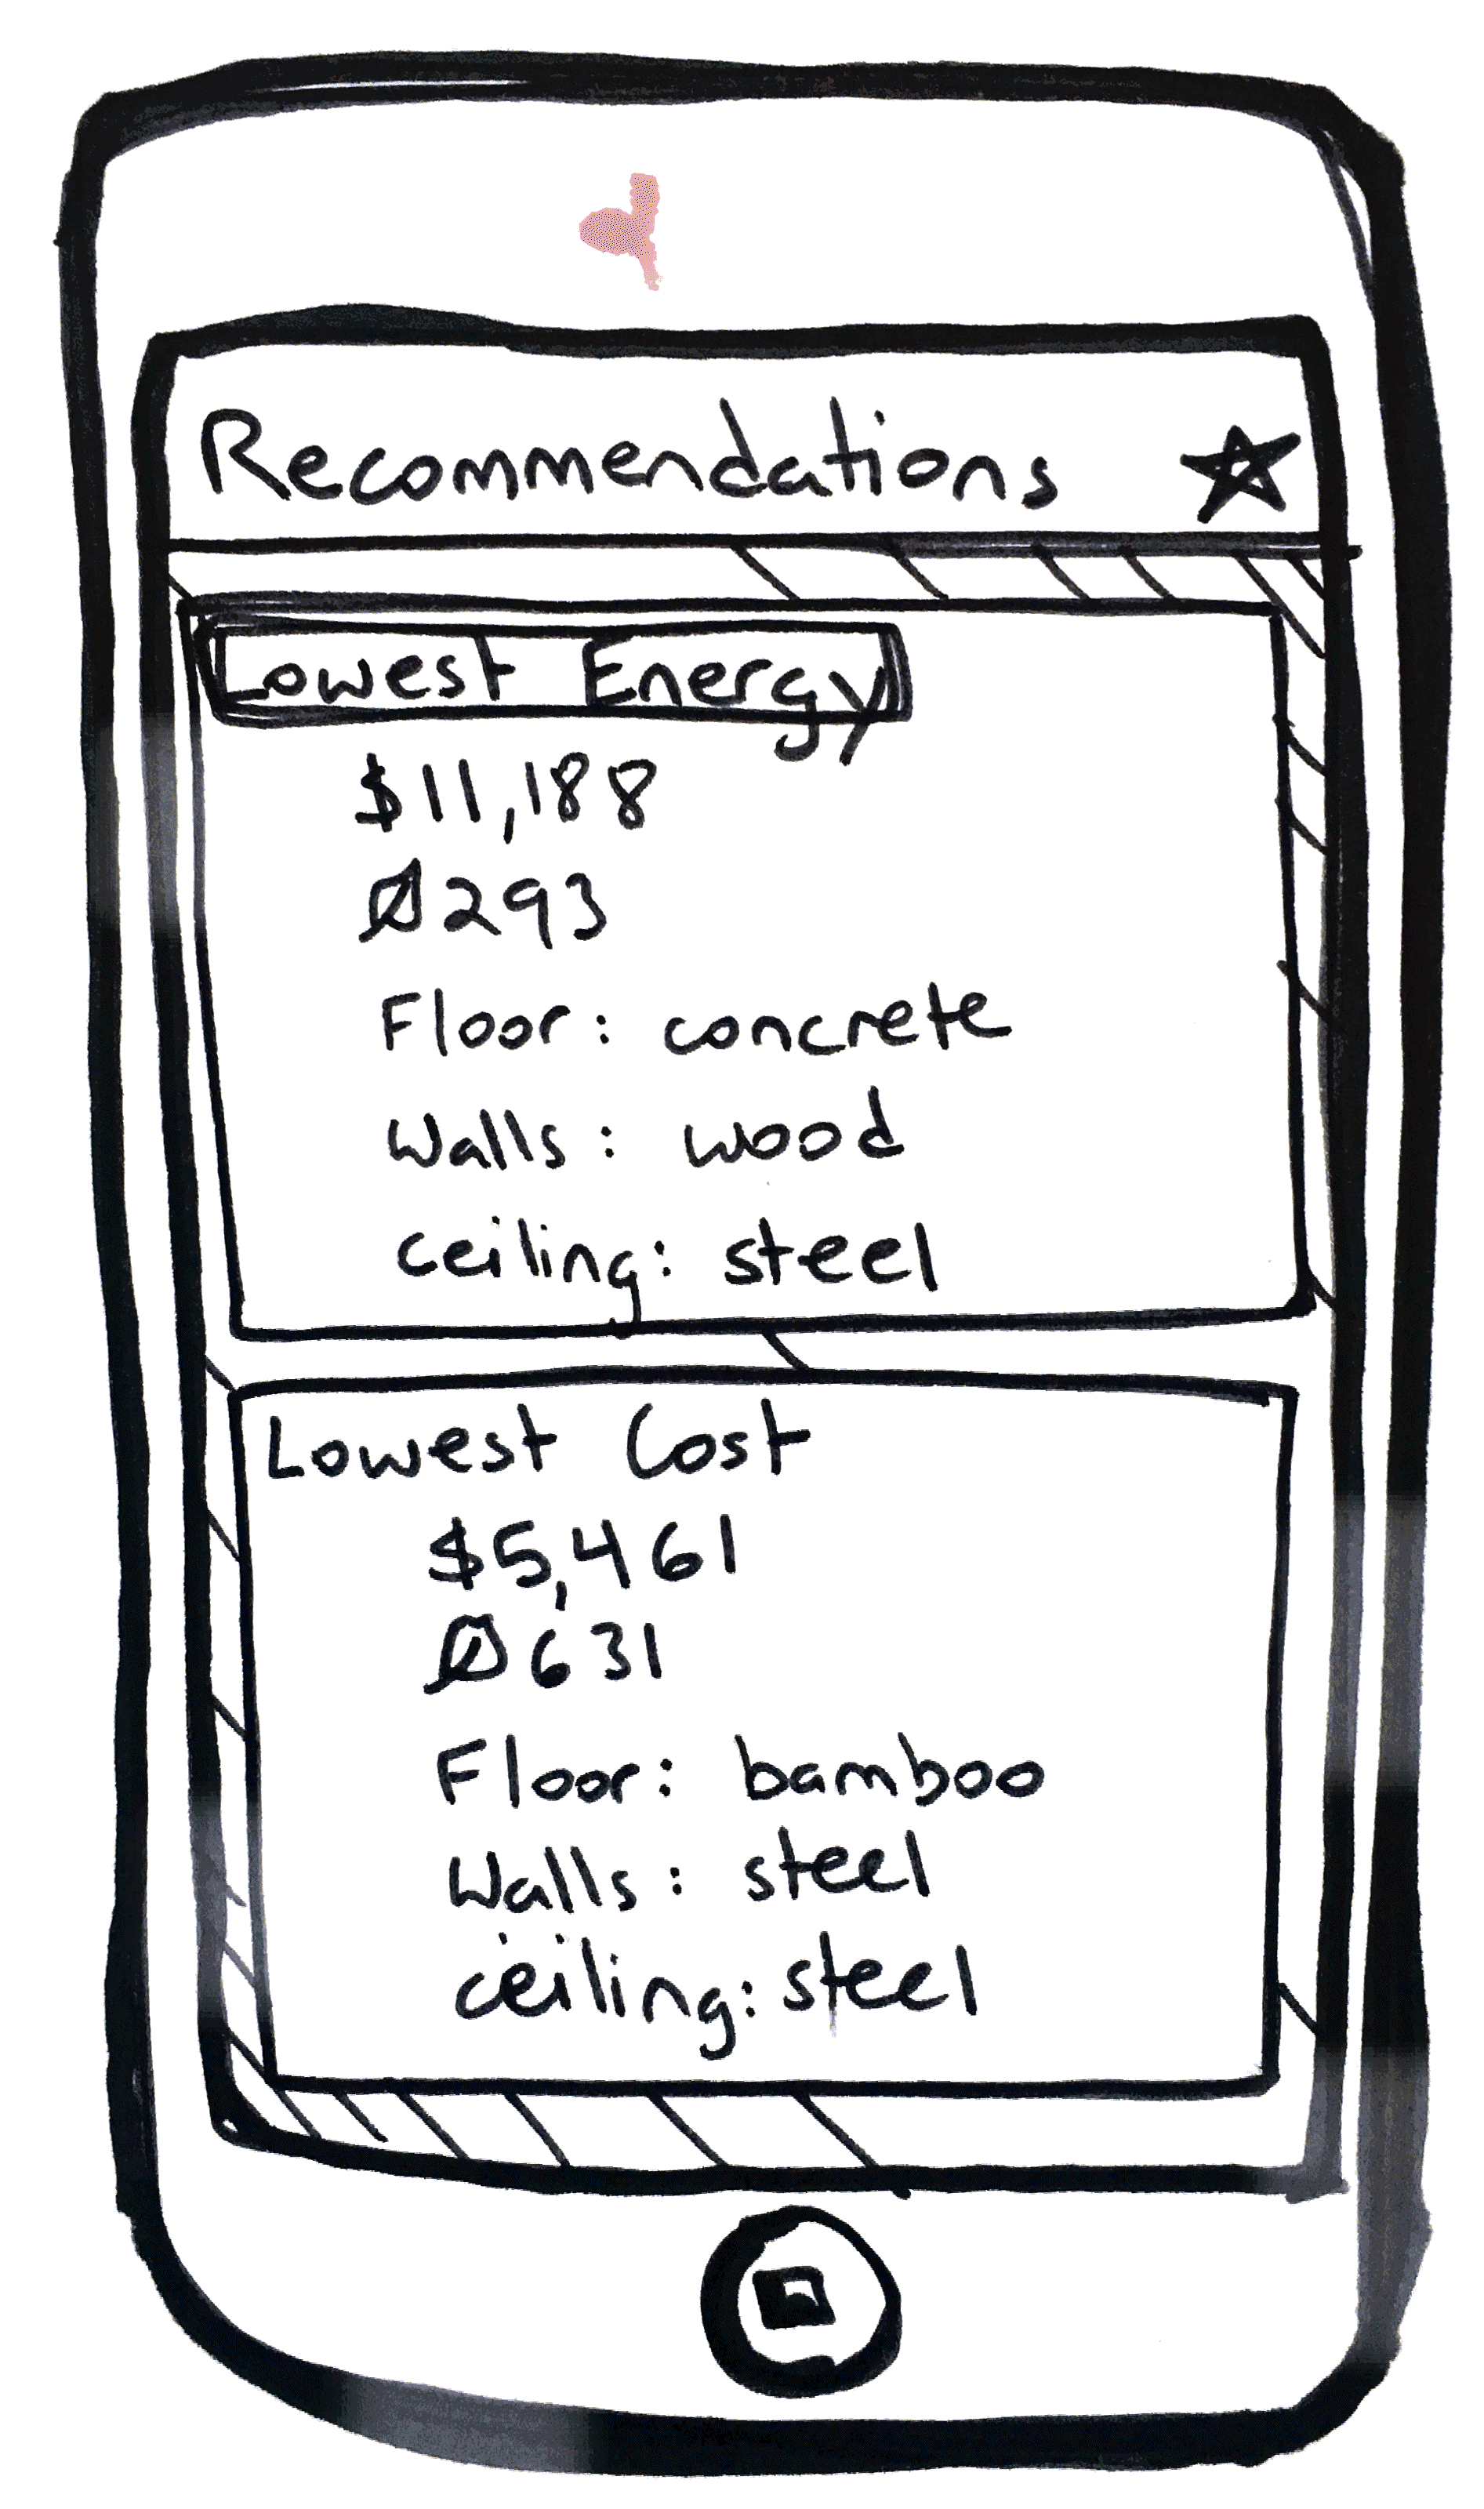 Recommendations
Lowest Energy
$11,188
Ø293
Floor: concrete
Walls: wood
ceiling: steel
Lowest Cost
$5,461
Ø631
Floor: bamboo
Walls: steel
ceiling: steel